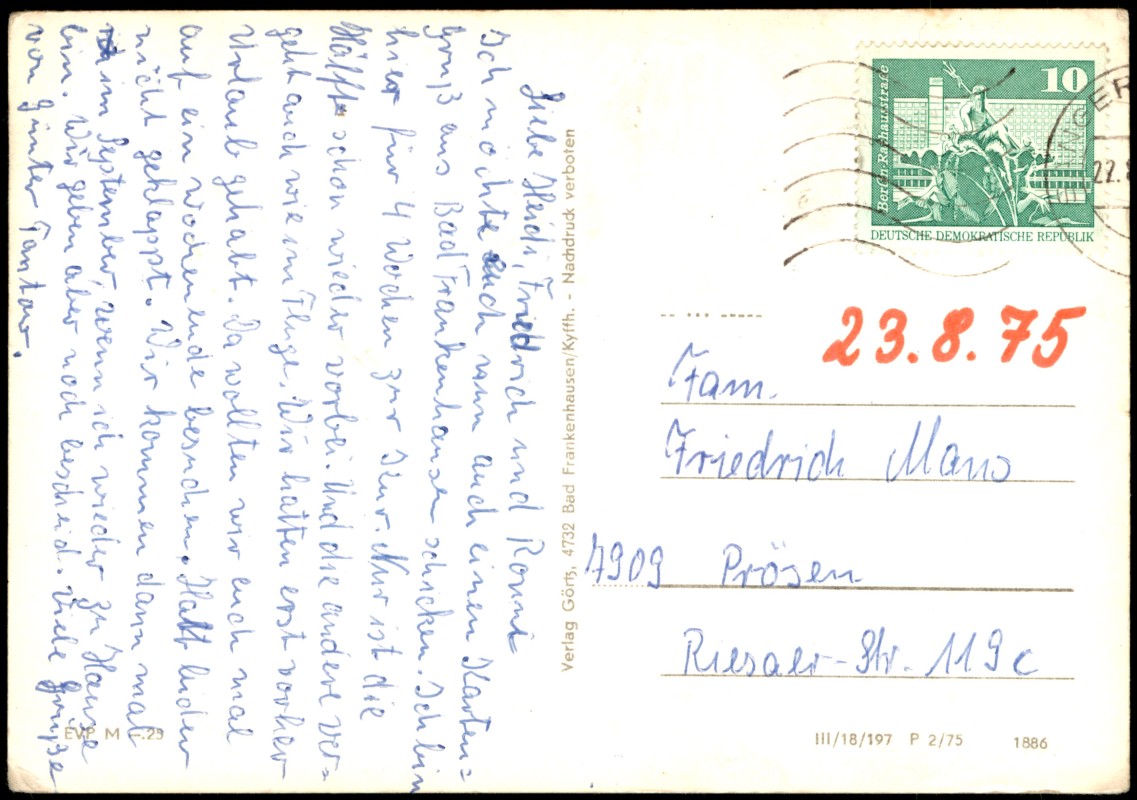 Liebe Heidi, Friedrich und Ronni
Ich möchte euch nun auch einen Karten=
gruß aus Bad Frankenhausen schicken. Ich bin
hier für 4 Wochen zur Kur. Nur ist die
Hälfte schon wieder vorbei. Und die andere ver=
geht auch wie im Fluge. Wir hatten erst vorher
Urlaub gehabt. Da wollten wir euch mal
auf ein Wochenende besuchen. Hatt leider
nicht geklappt. Wir kommen dann mal
im September, wenn ich wieder zu Hause
bin. Wir geben aber noch bescheid. Viele Grüße
von Günter Tantow.
Verlag Görtz, 4732 Bad Frankenhausen/Kyffh. - Nachdruck verboten
EVP M -.25
10
Berlin-Rathausstraße
DEUTSCHE DEMOKRATISCHE REPUBLIK
22.8
23.8.75
Fam.
Friedrich
7909 Prösen
Riesaer-Str. 119c
III/18/197 P 2/75 1886